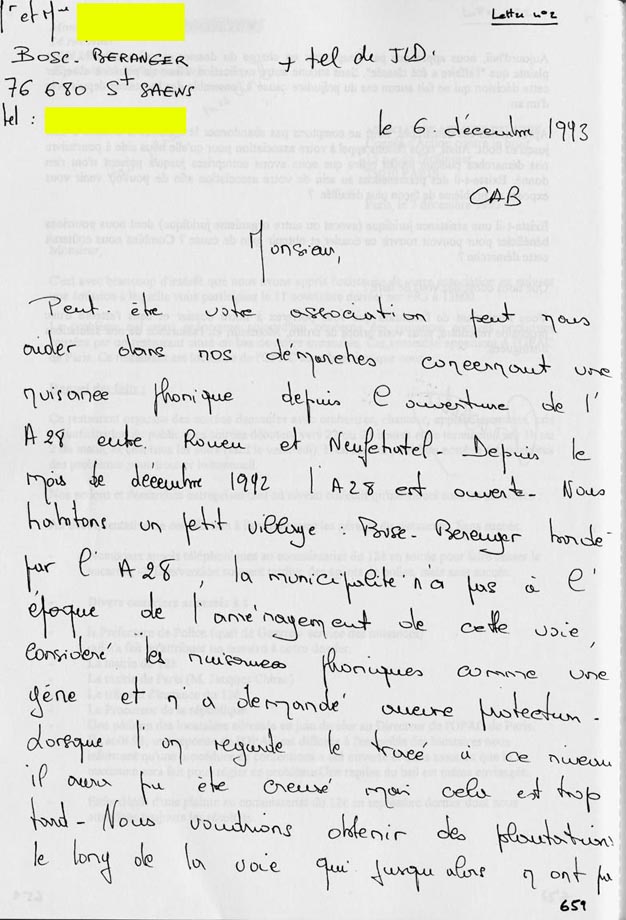 r et Mme
Lettre n°2
BOSC. BERANGER
+ tel de JLD.
76 680 St SAENS
tel :
le 6. décembre 1993
CAB
Monsieur,
Peut-être votre association peut nous
aider dans nos démarches concernant une
nuisance phonique depuis l'ouverture de l'
A28 entre Rouen et Neufchatel - Depuis le
mois de décembre 1992 l'A28 est ouverte - Nous
habitons un petit village : Bosc-Berenger bordé
par l'A28, la municipalité n'a pas à l'
époque de l'aménagement de cette voie,
considéré les nuisances phoniques comme une
gêne et n'a demandé aucune protection -
Lorsque l'on regarde le tracé à ce niveau
il aura pu être creusé mais cela est trop
tard - Nous voudrions obtenir des plantations
le long de la voie qui jusqu'alors n'ont pu
659